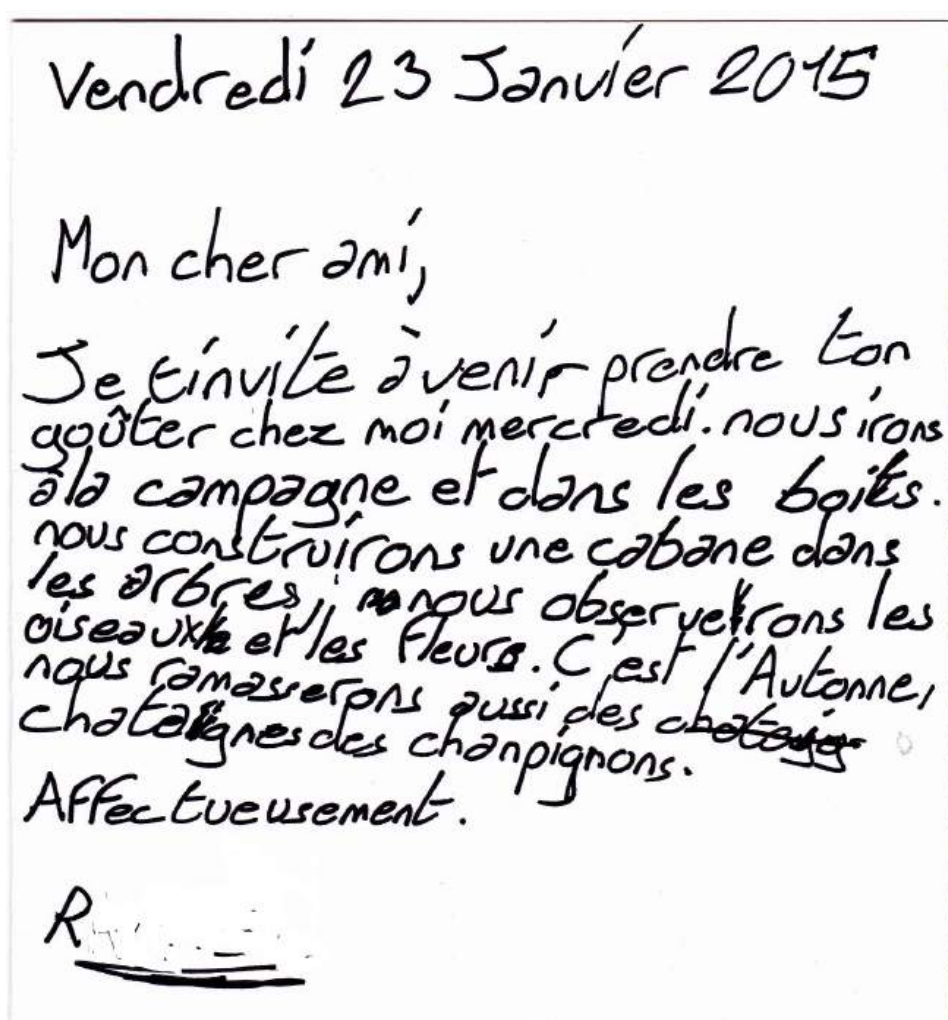 Vendredi 23 Janvier 2015
Mon cher ami,
Je t'invite à venir prendre ton
goûter chez moi mercredi. nous irons
à la campagne et dans les boits.
nous construirons une cabane dans
les arbres, nous observerons les
oiseaux et les fleurs. C'est l'Autonne,
nous ramasserons aussi des
chataignes des chanpignons.
Affectueusement.
R